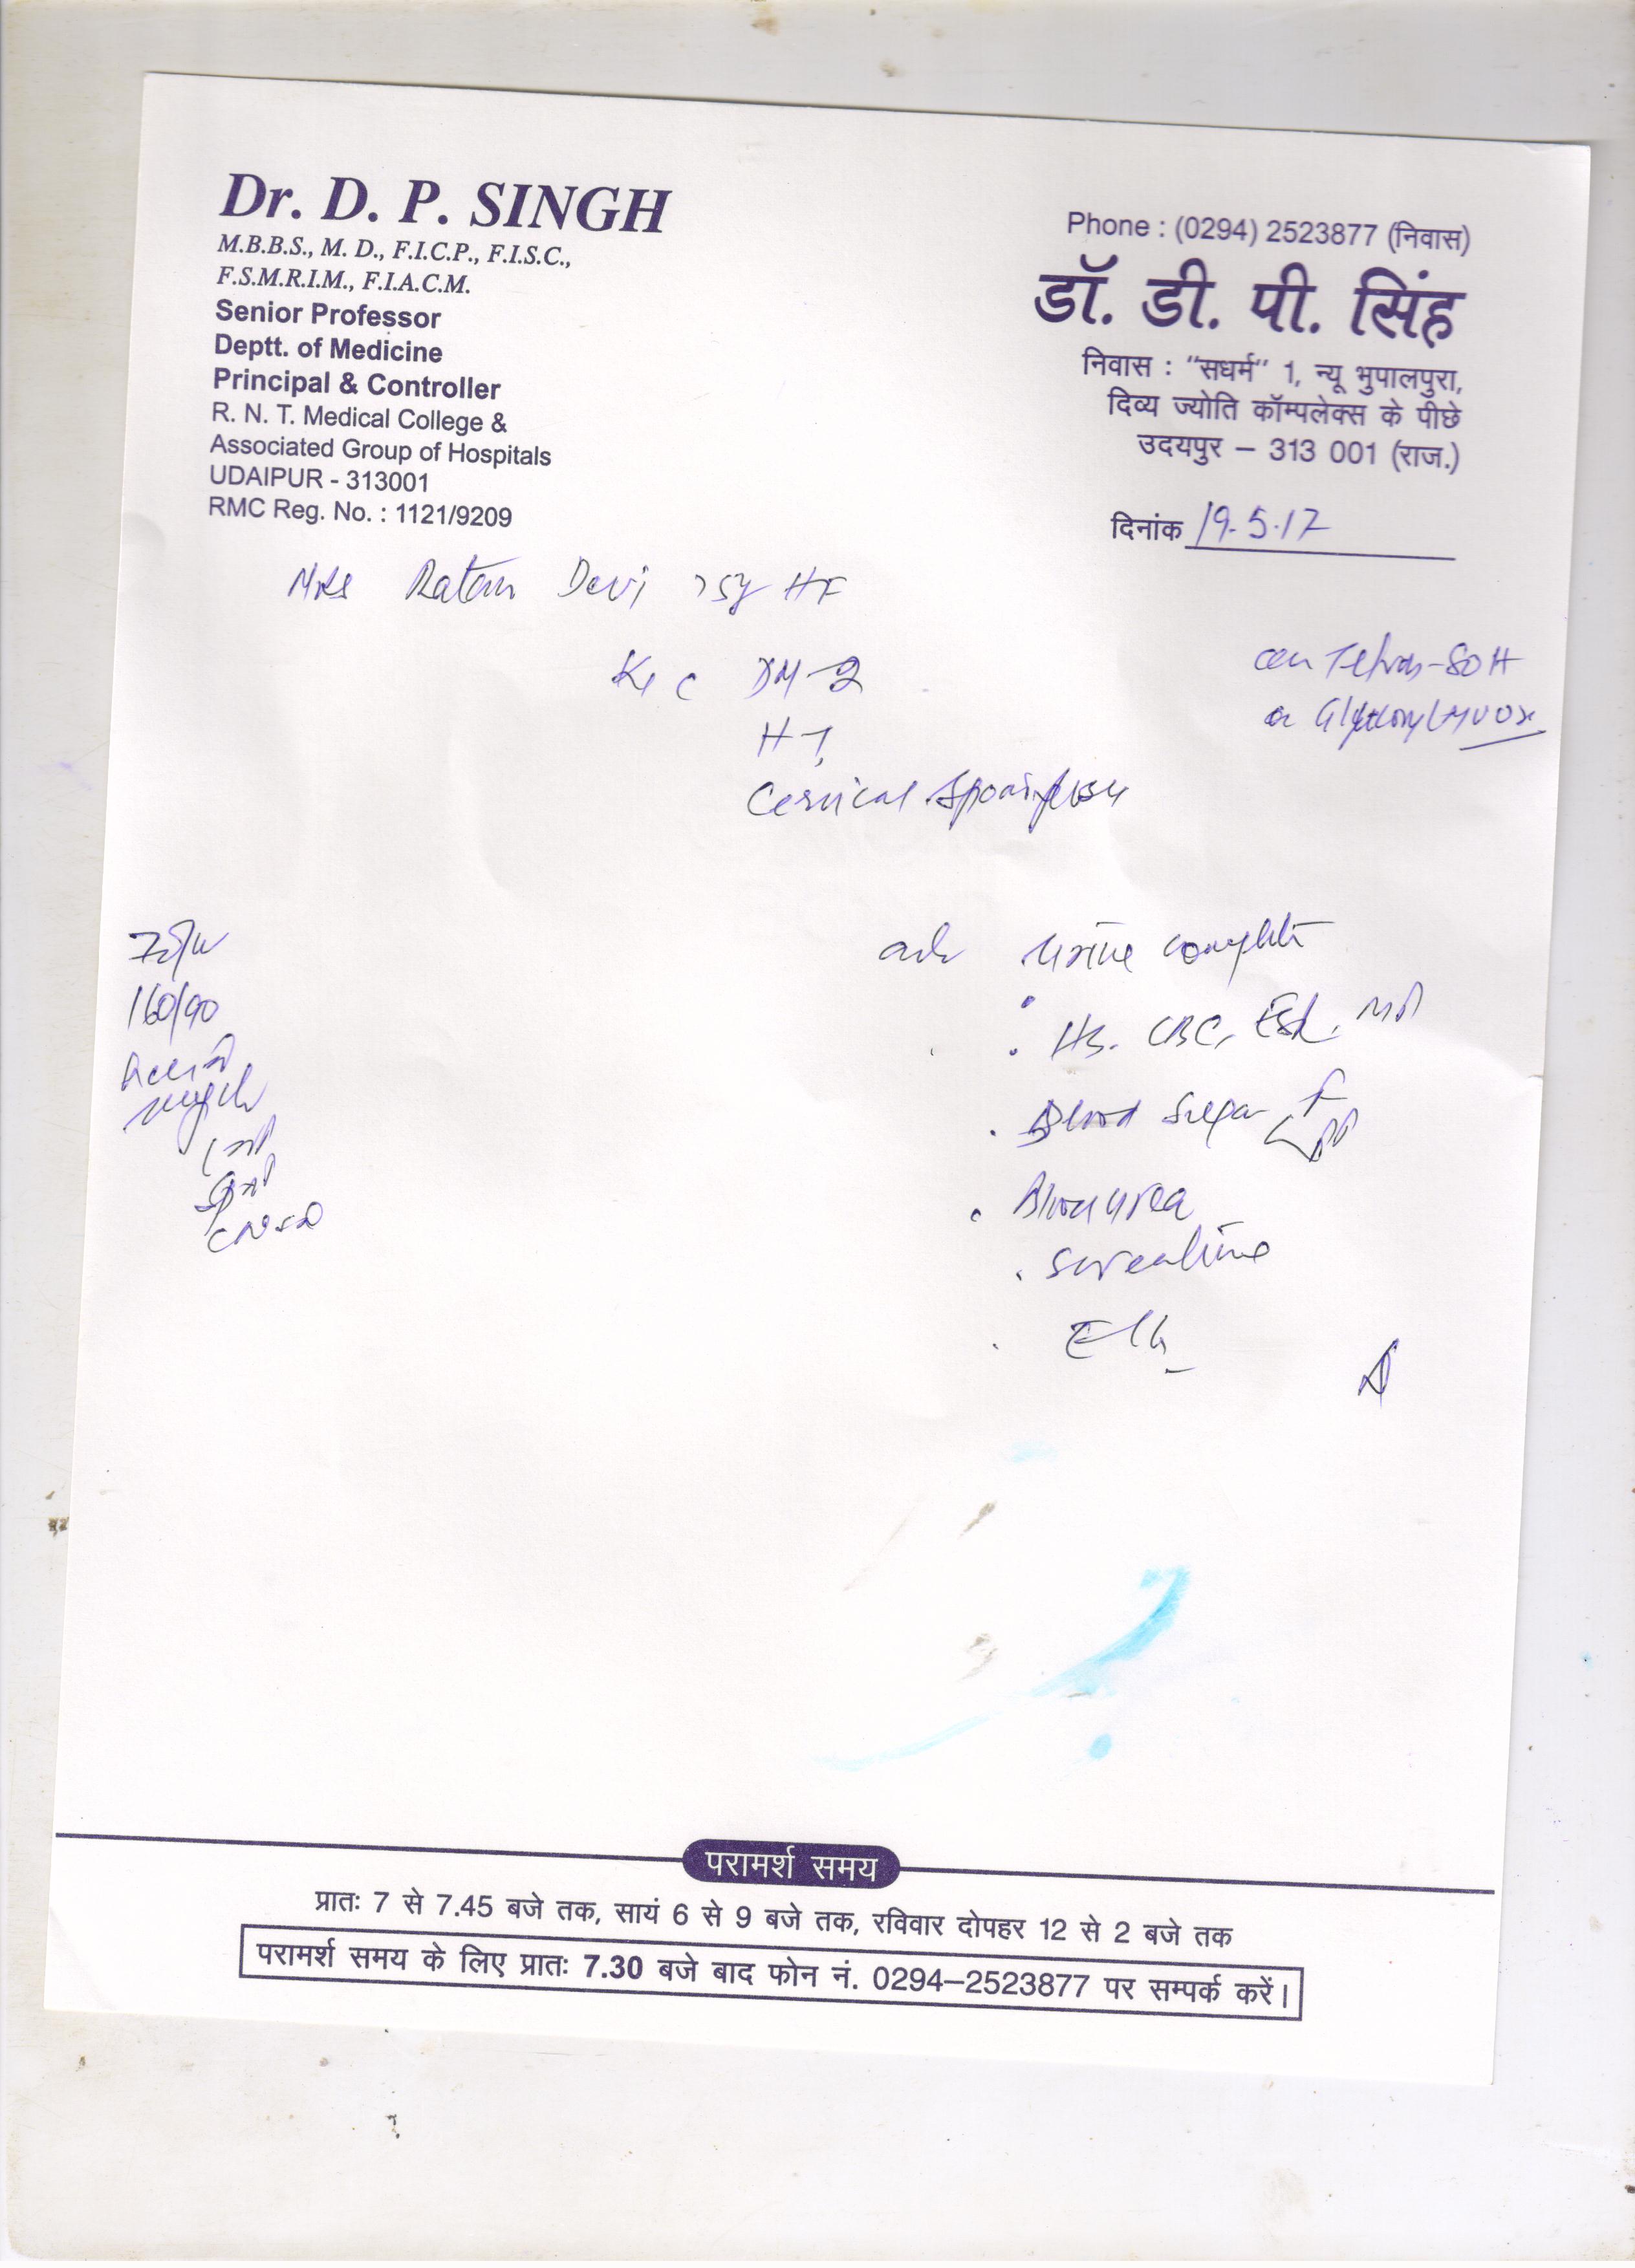 Dr. D. P. SINGH
M.B.B.S., M. D., F.I.C.P., F.I.S.C.,
F.S.M.R.I.M., F.I.A.C.M.
Senior Professor
Deptt. of Medicine
Principal & Controller
R. N. T. Medical College &
Associated Group of Hospitals
UDAIPUR - 313001
RMC Reg. No. : 1121/9209
Phone : (0294) 2523877 (निवास)
डॉ. डी. पी. सिंह
निवास : “सधर्म” 1, न्यू भुपालपुरा,
दिव्य ज्योति कॉम्पलेक्स के पीछे
उदयपुर – 313 001 (राज.)
दिनांक 19.5.17
Mrs Ratan Devi 75y HF
DM-2
HT
Cervical
160/90
adv Urine complete
Hb. CBC, ESR, MP
Blood Sugar F PP
Blood urea
S creatinine
परामर्श समय
प्रातः 7 से 7.45 बजे तक, सायं 6 से 9 बजे तक, रविवार दोपहर 12 से 2 बजे तक
परामर्श समय के लिए प्रातः 7.30 बजे बाद फोन नं. 0294–2523877 पर सम्पर्क करें।